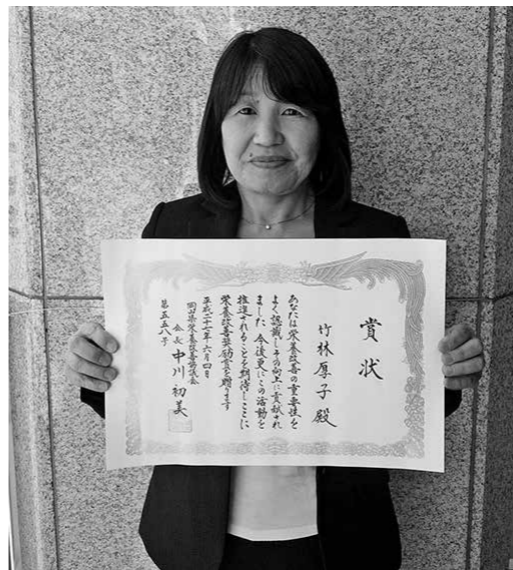 賞状
竹林厚子殿
あなたは栄養改善の重要性を
よく認識しその向上に貢献され
ました 今後更にこの活動を
推進されることを期待しここに
栄養改善奨励賞を贈ります
平成二十七年六月四日
岡山県栄養改善協議会
会長 中川初美
第五五八号